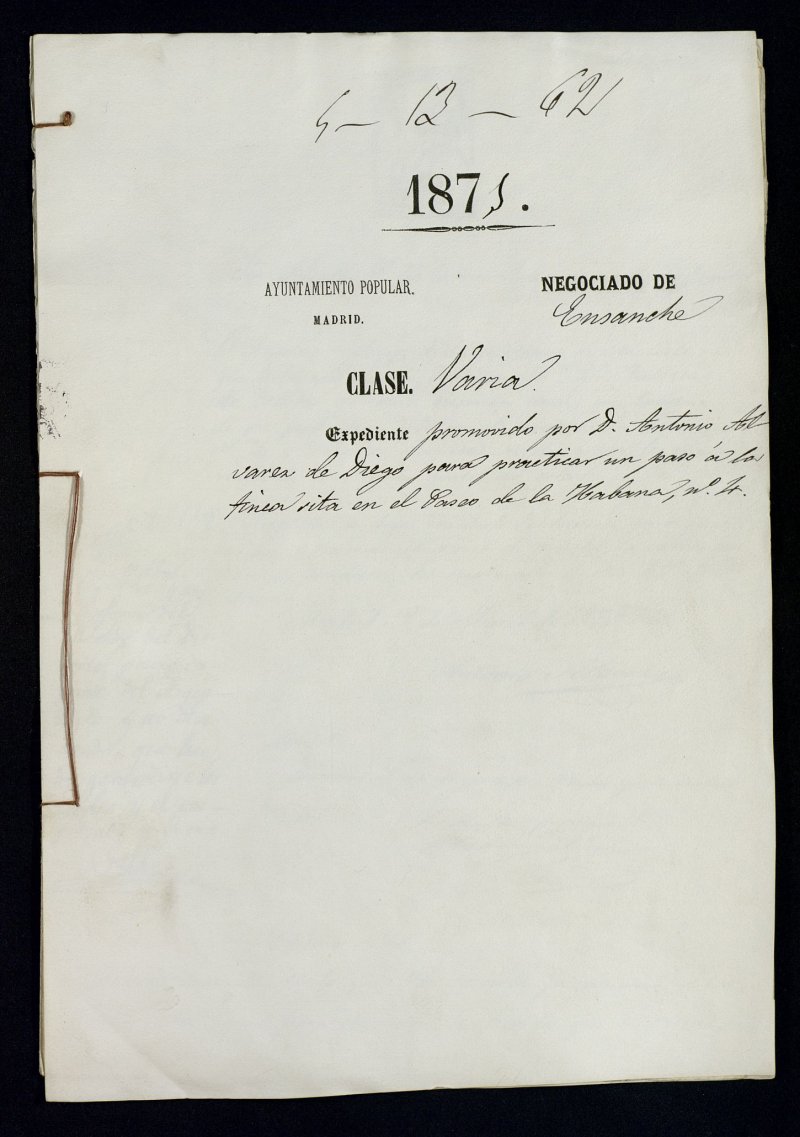 5 - 13 - 62
1871.
AYUNTAMIENTO POPULAR.
MADRID.
NEGOCIADO DE
Ensanche
CLASE. Varia.
Expediente promovido por D. Antonio Al
varez de Diego para practicar un paso á la
finca sita en el Paseo de la Habana, nº. 4.